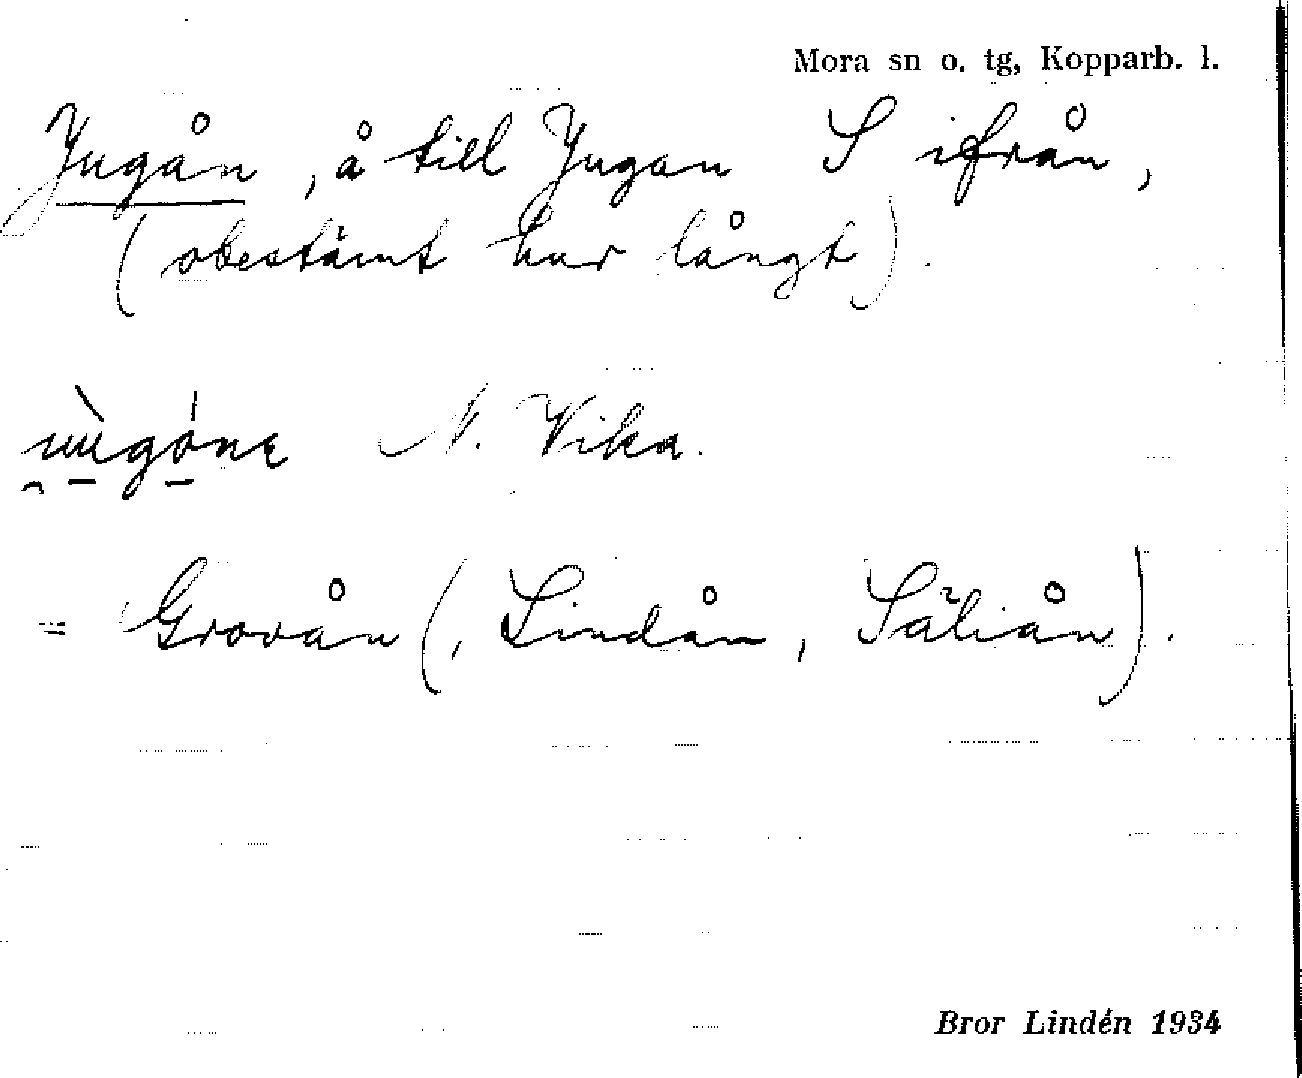 Mora sn o. tg, Kopparb. l.
Jugån, å till Jugan S ifrån,
(obestämt hur långt).
N. Vika.
= Grovån (, Lindån, Säliån).
Bror Lindén 1934